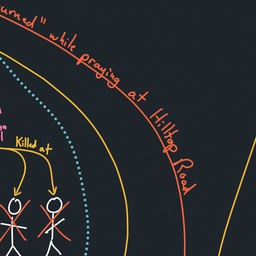 urned" while praying at Hilltop Road
Killed at